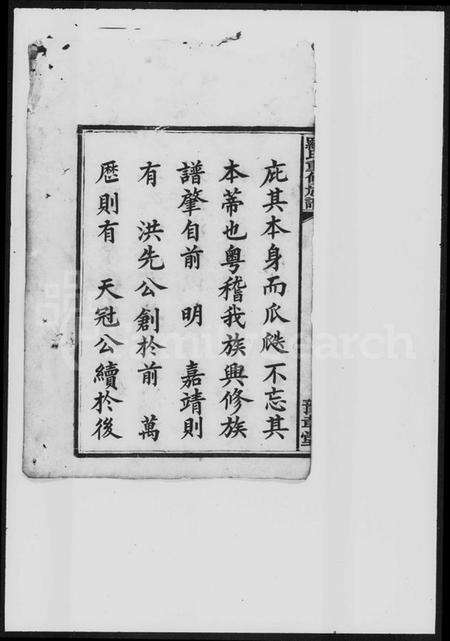 庇其本身而瓜瓞不忘其
本蒂也粵稽我族興修族
譜肇自前 明 嘉靖則
有 洪先公創於前 萬
歷則有 天冠公續於後
羅氏重修族譜
豫章堂